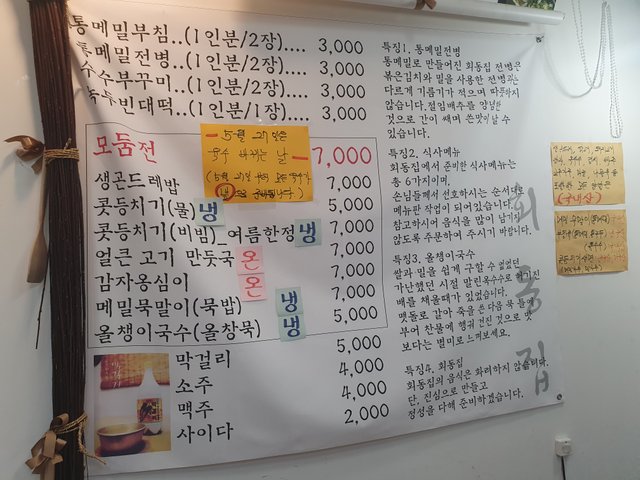 통메밀부침..(1인분/2장).... 3,000
통메밀전병..(1인분/2장).... 3,000
수수부꾸미..(1인분/2장).... 3,000
녹두빈대떡..(1인분/1장).... 3,000
모둠전 7,000
생곤드레밥 7,000
콧등치기(물) 냉 5,000
콧등치기(비빔)_여름한정 냉 7,000
얼큰 고기 만둣국 온 7,000
감자옹심이 온 7,000
메밀묵말이(묵밥) 냉 7,000
올챙이국수(올창묵) 냉 5,000
막걸리 5,000
소주 4,000
맥주 4,000
사이다 2,000
5월
바뀌는 날
특징1. 통메밀전병
통메밀로 만들어진 회동집 전병은
볶은김치와 밀을 사용한 전병과는
다르게 기름기가 적으며 따뜻하지
않습니다. 절임배추를 양념한
것으로 간이 쎄며 쓴맛이 날 수
있습니다.
특징2. 식사메뉴
회동집에서 준비한 식사메뉴는
총 6가지이며,
손님들께서 선호하시는 순서대로
메뉴판 작업이 되어있습니다.
참고하시어 음식을 많이 남기지
않도록 주문하여 주시기 바랍니다.
특징3. 올챙이국수
쌀과 밀을 쉽게 구할 수 없었던
가난했던 시절 말린옥수수로 허기진
배를 채울때가 있었습니다.
맷돌로 갈아 죽을 쑨 다음 묵 틀에
부어 찬물에 헹궈 건진 것으로 맛
보다는 별미로 느껴보세요.
특징4. 회동집
회동집의 음식은 화려하지 않습니다.
단, 진심으로 만들고
정성을 다해 준비하겠습니다.
회동집
(국내산)